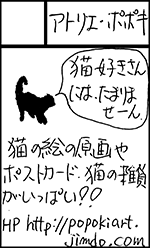 アトリエ・ポポキ
猫好きさん
には、たまりま
せーん。
猫の絵の原画や
ポストカード、猫の雑貨
がいっぱい??
HP http://popokiart.
jimdo.com